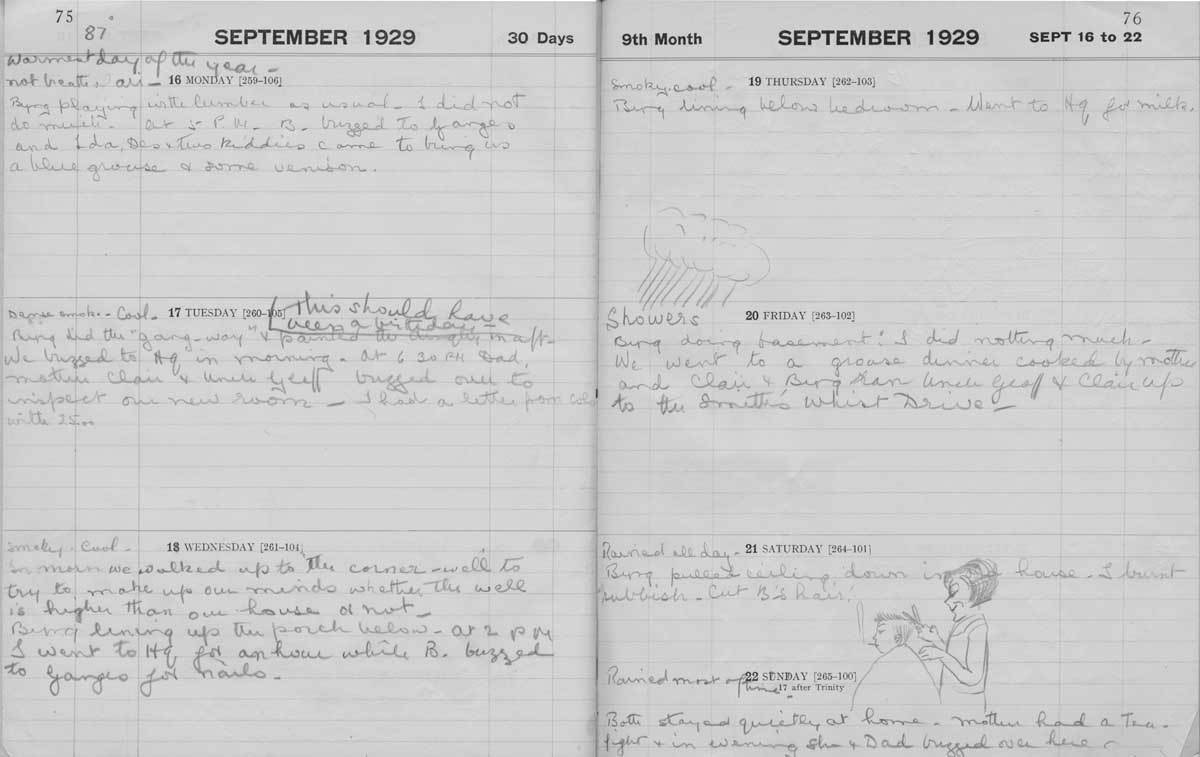 75
87°
SEPTEMBER 1929
30 Days
Warmest day of the year -
not beath. air -
16 MONDAY [259-106]
Byng playing with lumber as usual - I did not
do much. At 5 P.M. B. buzzed to Ganges
and Ida, Des & two kiddies came to bring us
a blue grouse & some venison.
Dense smoke - Cool -
17 TUESDAY [260-105]
This should have
been a birthday -
Byng did the "gang-way" & painted the dinghy mast -
We buzzed to Hq in morning. At 6 30 PM Dad,
mother Clair & Uncle Geoff buzzed over to
inspect our new room - I had a letter from
with 25.00
Smoky - Cool -
18 WEDNESDAY [261-104]
In morn we walked up to the corner - well to
try to make up our minds whether the well
is higher than our house or not -
Byng lining up the porch below - at 2 PM
I went to Hq for an hour while B. buzzed
to Ganges for nails -
9th Month
SEPTEMBER 1929
76
SEPT 16 to 22
Smoky, cool -
19 THURSDAY [262-103]
Byng lining below bedroom - Went to Hq for milk.
Showers
20 FRIDAY [263-102]
Byng doing basement. I did nothing much -
We went to a grouse dinner cooked by mother
and Clair & Byng ran Uncle Geoff & Clair up
to the Smith's Whist Drive -
Rained all day -
21 SATURDAY [264-101]
Byng pulled ceiling down in house - I burnt
rubbish - Cut B's hair!
Rained most of time
22 SUNDAY [265-100]
17 after Trinity
Both stayed quietly at home - mother had a Tea-
fight & in evening she & Dad buzzed over here -